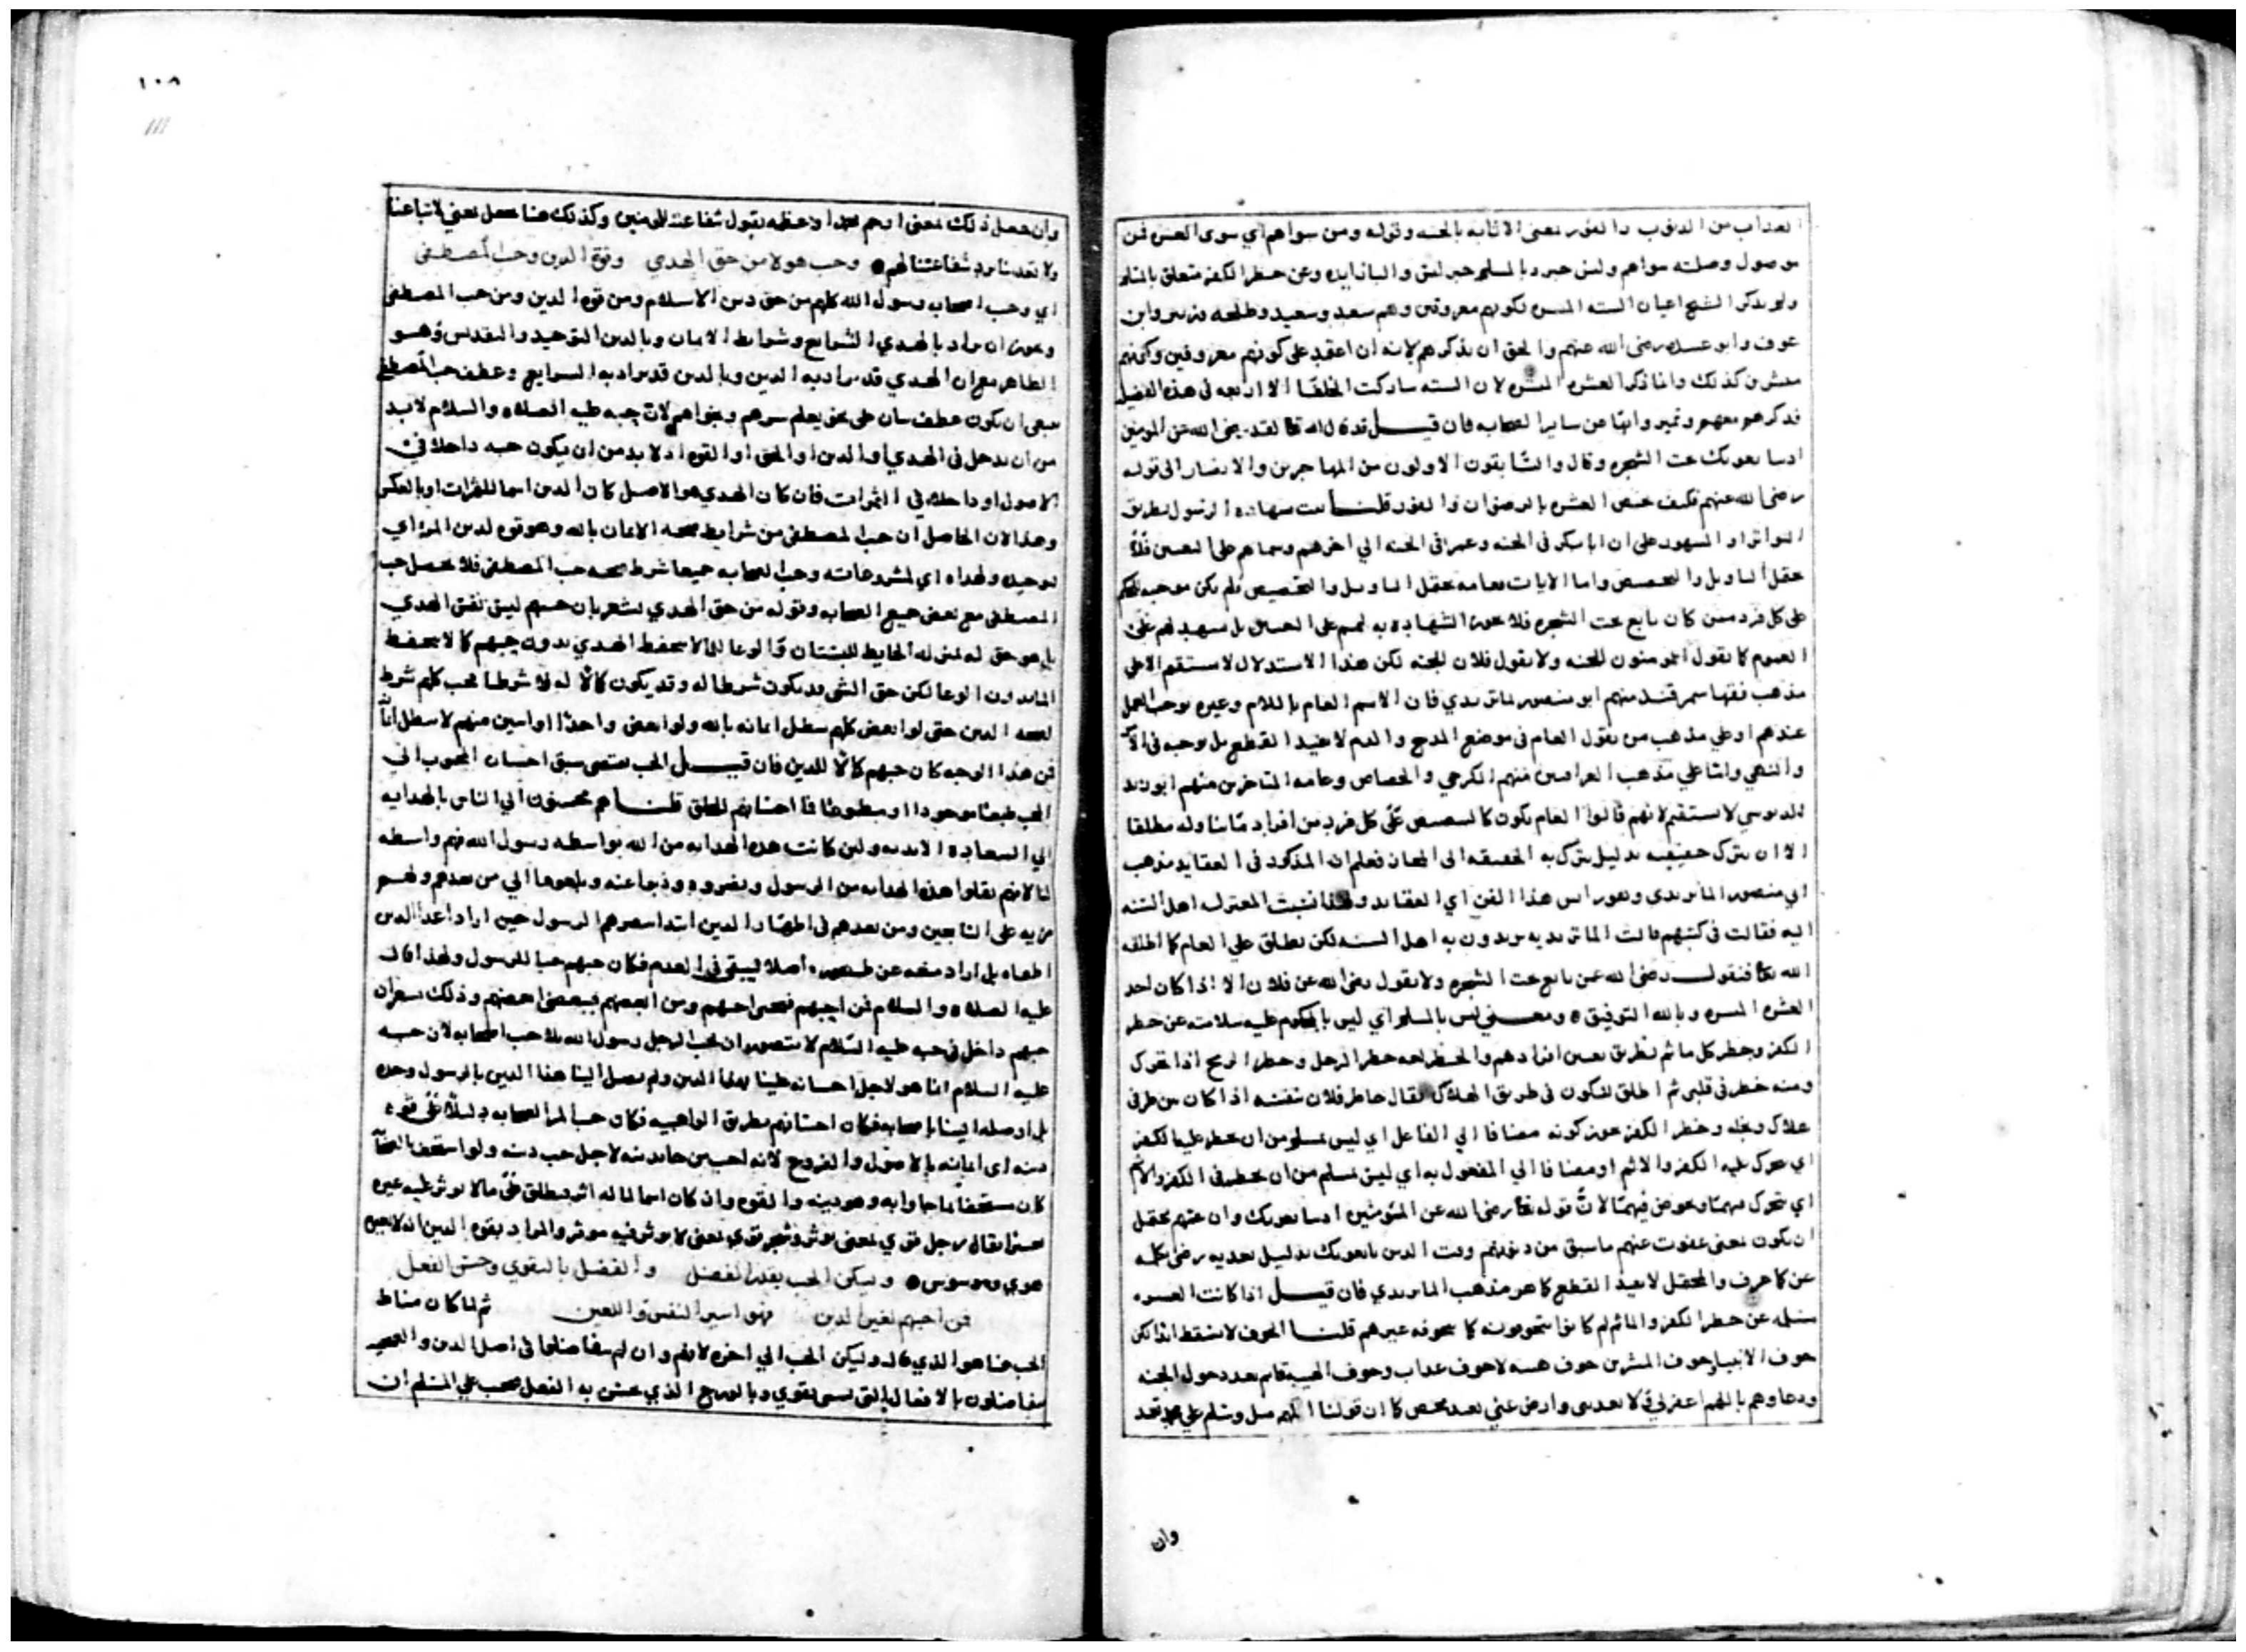 العذاب من الذنوب والفوز بمعنى الاثابة بالجنه وقوله ومن سواهم اي سوى العشر فمن
موصول وصلته سواهم وليس خبره بالمسلم خبر ليس والبا زايده وعن خطر الكفر متعلق بالمسلم
ولم يذكر الشيخ اعيان السته لكونهم معروفين وهم سعد وسعيد وطلحه وزبير وابن
عوف وابو عبيده رضي الله عنهم والحق ان يذكرهم لانه ان اعتمد على كونهم معروفين وكونهم
مبشرين كذلك وانما ذكر العشره المبشره لان السته شاركت الخلفا الاربعه في هذه الفضل
فذكرهم معهم وتميزوا بها عن ساير الصحابه فان قيل قد قال الله تعا لقد رضي الله عن المومنين
اذ يبايعونك تحت الشجره وقال والسابقون الاولون من المهاجرين والانصار الى قوله
رضي الله عنهم فكيف خص العشره بالرضوان والفوز قلنا شهادة الرسول بطريق
التواتر او المشهور على ان ابا بكر في الجنه وعمر في الجنه الي اخرهم وسماهم على التعيين فلا
يحتمل التاويل والتخصيص واما الايات فعامه تحتمل التاويل والتخصيص فلم تكن موجبه للحكم
على كل فرد ممن كان بايع تحت الشجره فلا يجوز الشهاده به لهم على التعيين بل يشهد لهم على
العموم كما يقول المومنون للجنه ولا يقول فلان للجنه لكن هذا الاستدلال لا يستقيم الا على
مذهب فقها سمرقند منهم ابو منصور الماتريدي فان الاسم العام باللام وغيره يوجب العمل
عندهم او على مذهب من يقول العام في موضع المدح والذم لا يفيد القطع بل يوجبه في الامر
والنهي واما علي مذهب العراقيين منهم الكرخي والجصاص وعامه المتاخرين منهم ابو زيد
الدبوسي لا يستقيم لانهم قالوا العام يكون كالتنصيص على كل فرد من افراد ما تناوله مطلقا
الا ان يترك حقيقته بدليل يترك به الحقيقه الى المجاز فعلم ان المذكور في العقايد مذهب
ابي منصور الماتريدي وهو راس هذا الفن اي العقايد ولهذا نسبت المعتزله اهل السنه
اليه فقالت في كتبهم قالت الماتريديه يريدون به اهل السنه لكن نطلق علي العام كما اطلقه
الله تعا فنقول رضي الله عمن بايع تحت الشجره ولا يقول رضي الله عن فلان الا اذا كان احد
العشره المبشره وبالله التوفيق ومعنى ليس بالمسلم اي ليس بالمحكوم عليه سلامته عن خطر
الكفر وخطر كل ماثم بطريق تعيين افرادهم والخطر لغه خطر الرجل وخطر الرمح اذا تحرك
ومنه خطر في قلبي ثم اطلق للكون في طريق الهلاك يقال خاطر فلان بنفسه اذا كان من طرفي
هلاك ونجاه وخطر الكفر يجوز كونه مضافا الي الفاعل اي ليس بمسلم من ان يخطر عليه الكفر
اي يتحرك عليه الكفر والاثم او مضافا الي المفعول به اي ليس بمسلم من ان يخطر في الكفر والاثم
اي يتحرك فيهما ويخوض فيهما لان قوله تعا رضي الله عن المومنين اذ يبايعونك وان عنهم يحتمل
ان يكون بمعنى عفوت عنهم ما سبق من ذنوبهم وقت الذين بايعونك بدليل تعديه رضي بكلمه
عن كما عرف والمحتمل لا يفيد القطع كما هو مذهب الماتريدي فان قيل اذا كانت العشره
مسلمه عن خطر الكفر والماثم لم كانوا يتخوفونه كما يخوفه غيرهم قلنا الخوف لا يسقط ابدا لكن
خوف الانبيا وخوف المبشرين خوف هيبه لا خوف عذاب وخوف الهيبه قايم بعد دخول الجنه
ودعاوهم باللهم اغفر لي لا تعذبني وارض عني تعبد محض كما ان قولنا اللهم صل وسلم على محمد تعبد
وان
١٠٨
وان حصل ذلك بمعنى ارحم محمدا واعظمه بقبول شفاعته للمومنين وكذلك هنا يحصل بمعنى لاتباعنا
ولا تعذبنا برد شفاعتنا لهم وحب هولا من حق الهدي وقوة الدين وحب المصطفى
اي وحب اصحاب رسول الله كلهم من حق دين الاسلام ومن قوه الدين ومن حب المصطفى
ويجوز ان يراد بالهدي الشرايع وشرايط الايمان وبالدين التوحيد والتقديس وهو
الظاهر مع ان الهدي قد يراد به الدين وبالدين قد يراد به الشرايع وعطف حب المصطفى
ينبغي ان يكون عطف بيان على نحو يعلم سرهم ونجواهم لان حبه عليه الصلاه والسلام لابد
من ان يدخل في الهدي او الدين او الحق او القوه اذ لا بد من ان يكون حبه داخلا في
الاصول او داخلا في الثمرات فان كان الهدي هو الاصل كان الدين اسما للثمرات او بالعكس
وهذا لان الحاصل ان حب المصطفى من شرايط صحه الايمان بالله وهو قوه لدين المرء اي
توحيده ولهداه اي لمشروعاته وحب الصحابه جميعا شرط صحه حب المصطفى فلا يحصل حب
المصطفى مع بغض جميع الصحابه وقوله من حق الهدي يشعر بان حبهم ليس نفس الهدي
بل هو حق له بمنزله الحايط للبستان والوعا للماء لا يحفظ الهدي بدون حبهم كما لا يحفظ
الما بدون الوعا لكن حق الشي قد يكون شرطا له وقد يكون كمالا له لا شرطا فحب كلهم شرط
لصحه الدين حتى لو ابغض كلهم يبطل ايمانه بالله ولو ابغض واحدا او اثنين منهم لا يبطل ايمانه
فمن هذا الوجه كان حبهم كمالا للدين فان قيل الحب يقتضى سبق احسان المحبوب الي
المحب طبعا موجودا او مطبوعا فما احسانهم للخلق قلنا هم محسنون الي الناس بالهدايه
الي السعاده الابديه ولئن كانت هذه الهدايه من الله بواسطه رسول الله فهم واسطه
لنا لانهم نقلوا هذه الهدايه من الرسول ونصروه وذبوا عنه وبلغوها الي من بعدهم ولهم
مزيه على التابعين ومن بعدهم في اظهار الدين ابتداء بنصرهم الرسول حين اراد اعدا الدين
اطفاه بل اراد منعه عن ظهوره اصلا ليبقى في العدم فكان حبهم حبا للرسول ولهذا قال
عليه الصلاه والسلام فمن احبهم فبحبي احبهم ومن ابغضهم فببغضي ابغضهم وذلك يشعر ان
حبهم داخل في حبه عليه السلام لا يتصور ان يحب الرجل رسول الله بلا حب اصحابه لان حبه
عليه السلام انما هو لاجل احسانه علينا بهذا الدين ولم يصل الينا هذا الدين بالرسول وحده
بل اوصله الينا باصحابه فكان احسانهم بطريق الواهبيه فكان حب المرء الصحابه دليلا على قوه
دينه اي ايمانه بالاصول والفروع لانه احب من حامل دينه لاجل حب دينه ولو استخف بالصحابه
كان مستخفا بما جاوا به وهو دينه والقوه وان كان اسما لما له اثر يطلق على ما لا يوثر عليه غيره
يقال رجل قوي بمعنى يوثر وشجر قوي بمعنى لا يوثر فيه موثر والمراد بقوه الدين انه لا
هوي ووسوس وليكن الحب بقدر الفضل والفضل بالتقوي وحسن الفعل
فمن احبهم لغير الدين فهو اسير النفس واللعين ثم لما كان مناط
الحب هنا هو الذي قال وليكن الحب الي اخره لانهم وان لم يتفاضلوا في اصل الدين و
يتفاضلون بالافعال التي تسمى تقوي وبالورع الذي يحسن به الفعل فيجب علي المسلم ان